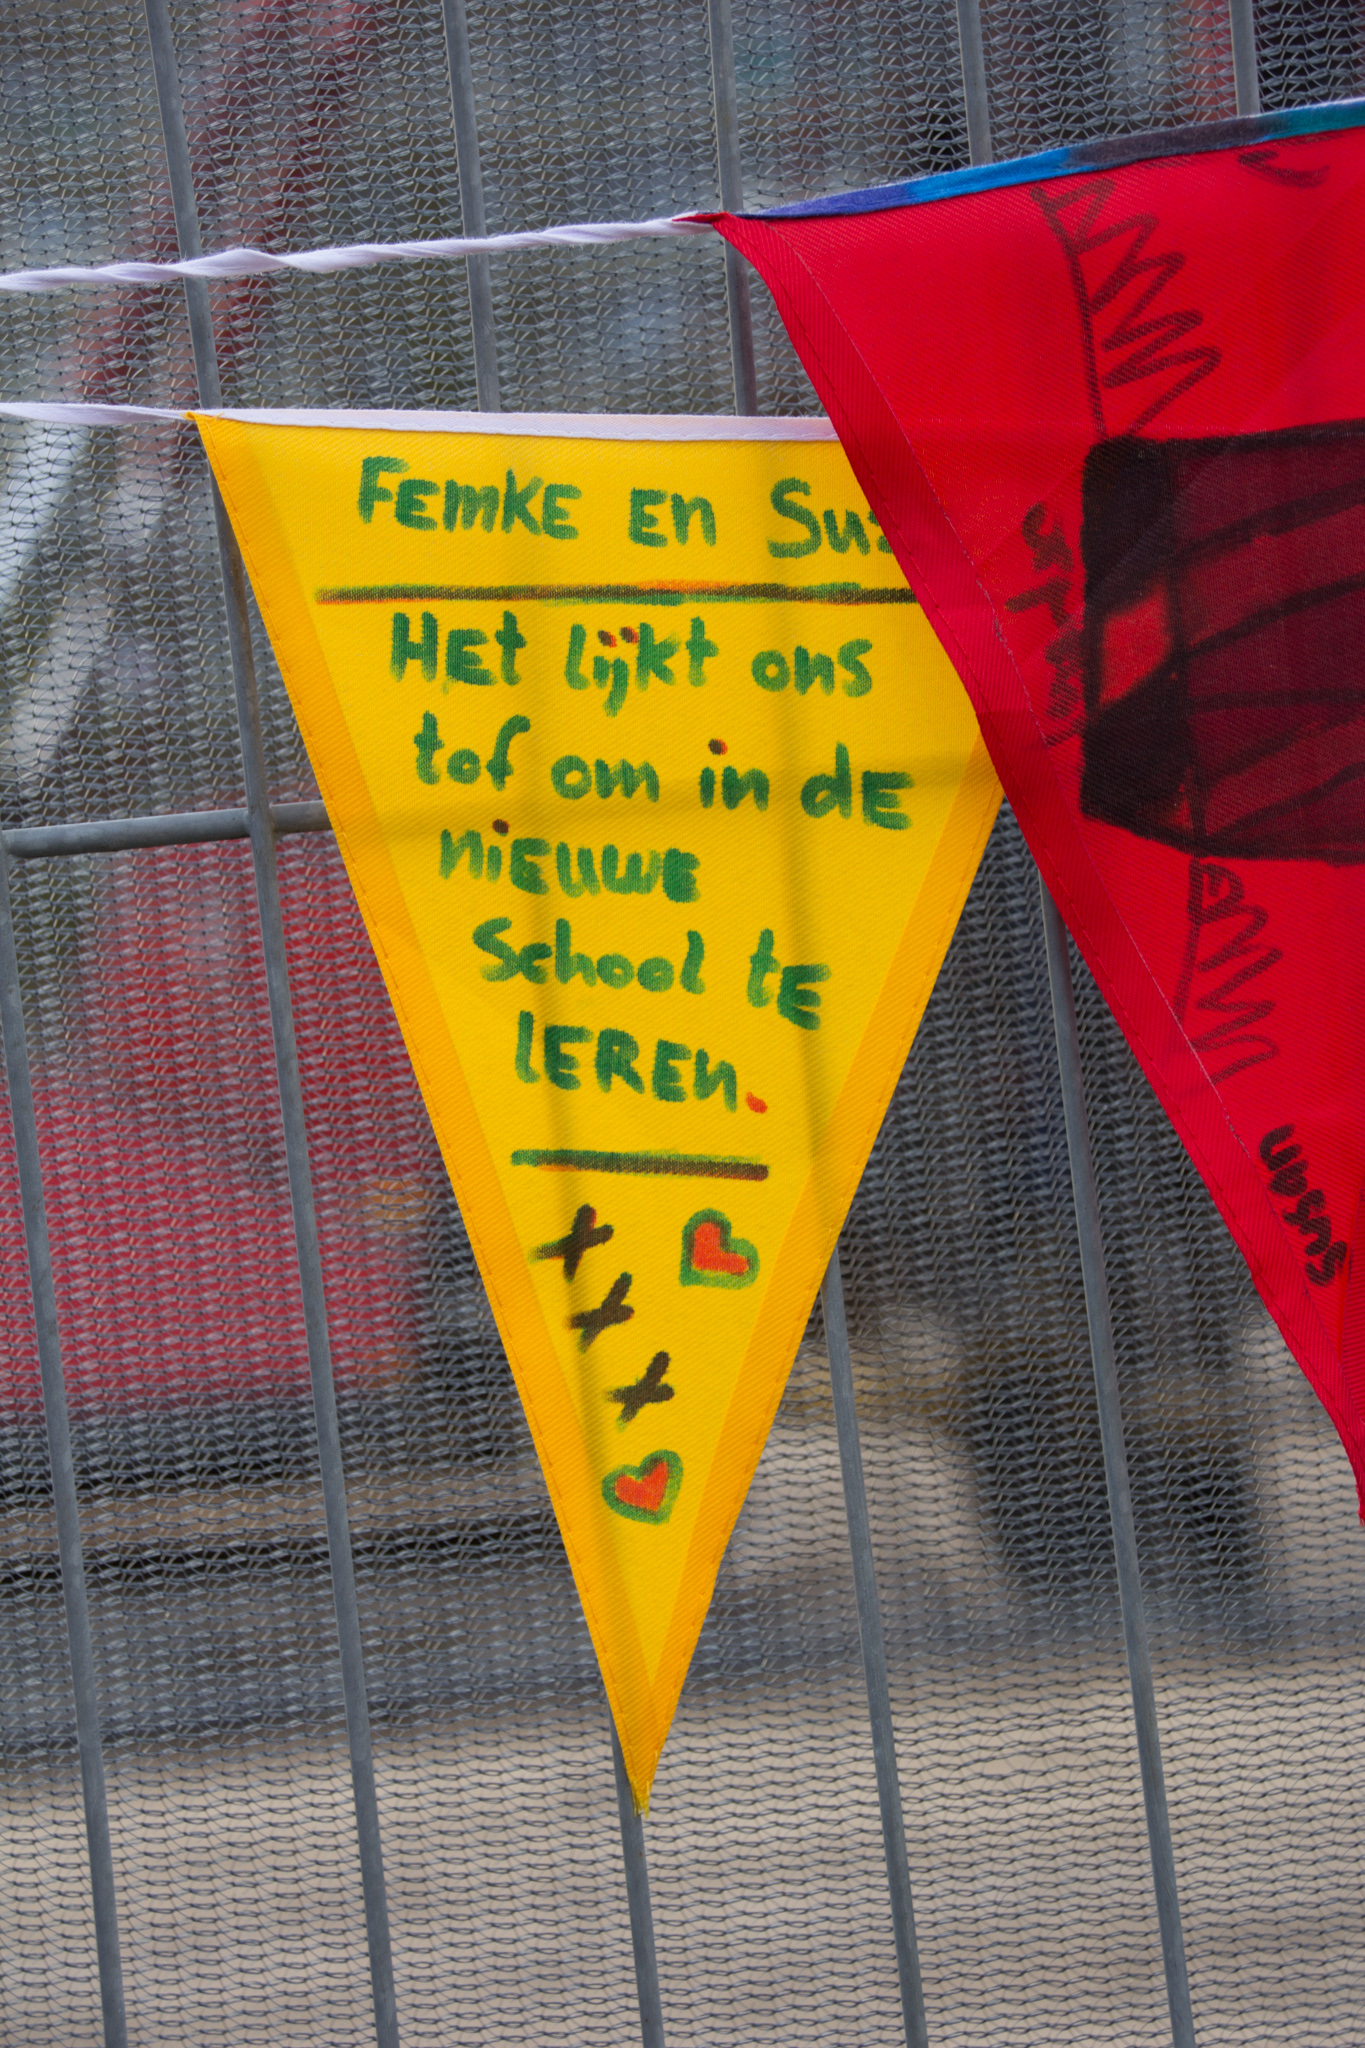 FEmKE En Su
HEt lijkt ons
tof om in dE
niEuwE
School tE
lEREn.
susan